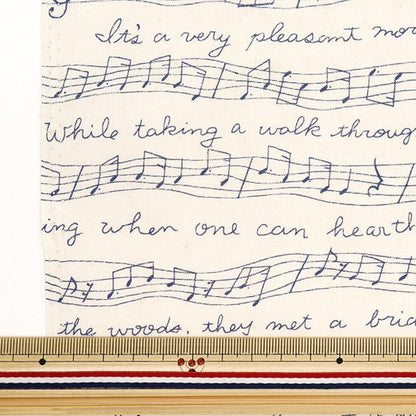 It's a very pleasant mor
While taking a walk throug
ing when one can hearth
the woods. they met a bria